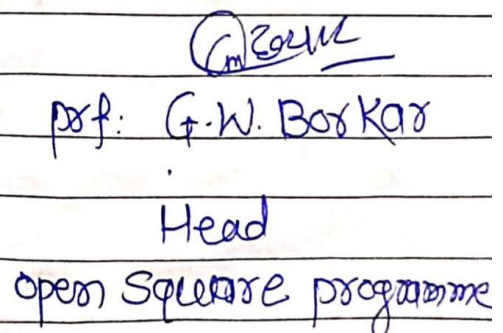 prof: G.W. Borkar
Head
open Square programme